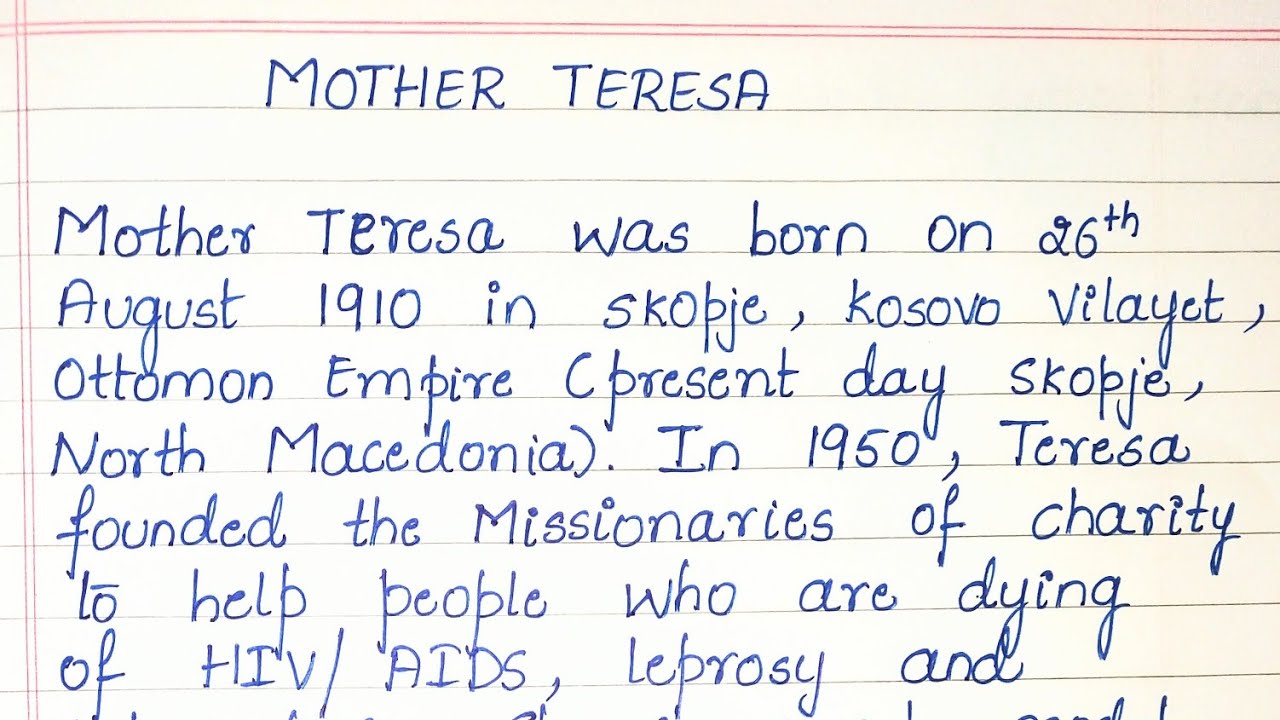 MOTHER TERESA
Mother Teresa was born on 26th
August 1910 in skopje, kosovo vilayet,
Ottomon Empire (present day skopje,
North Macedonia). In 1950, Teresa
founded the Missionaries of charity
to help people who are dying
of HIV/AIDS, leprosy and